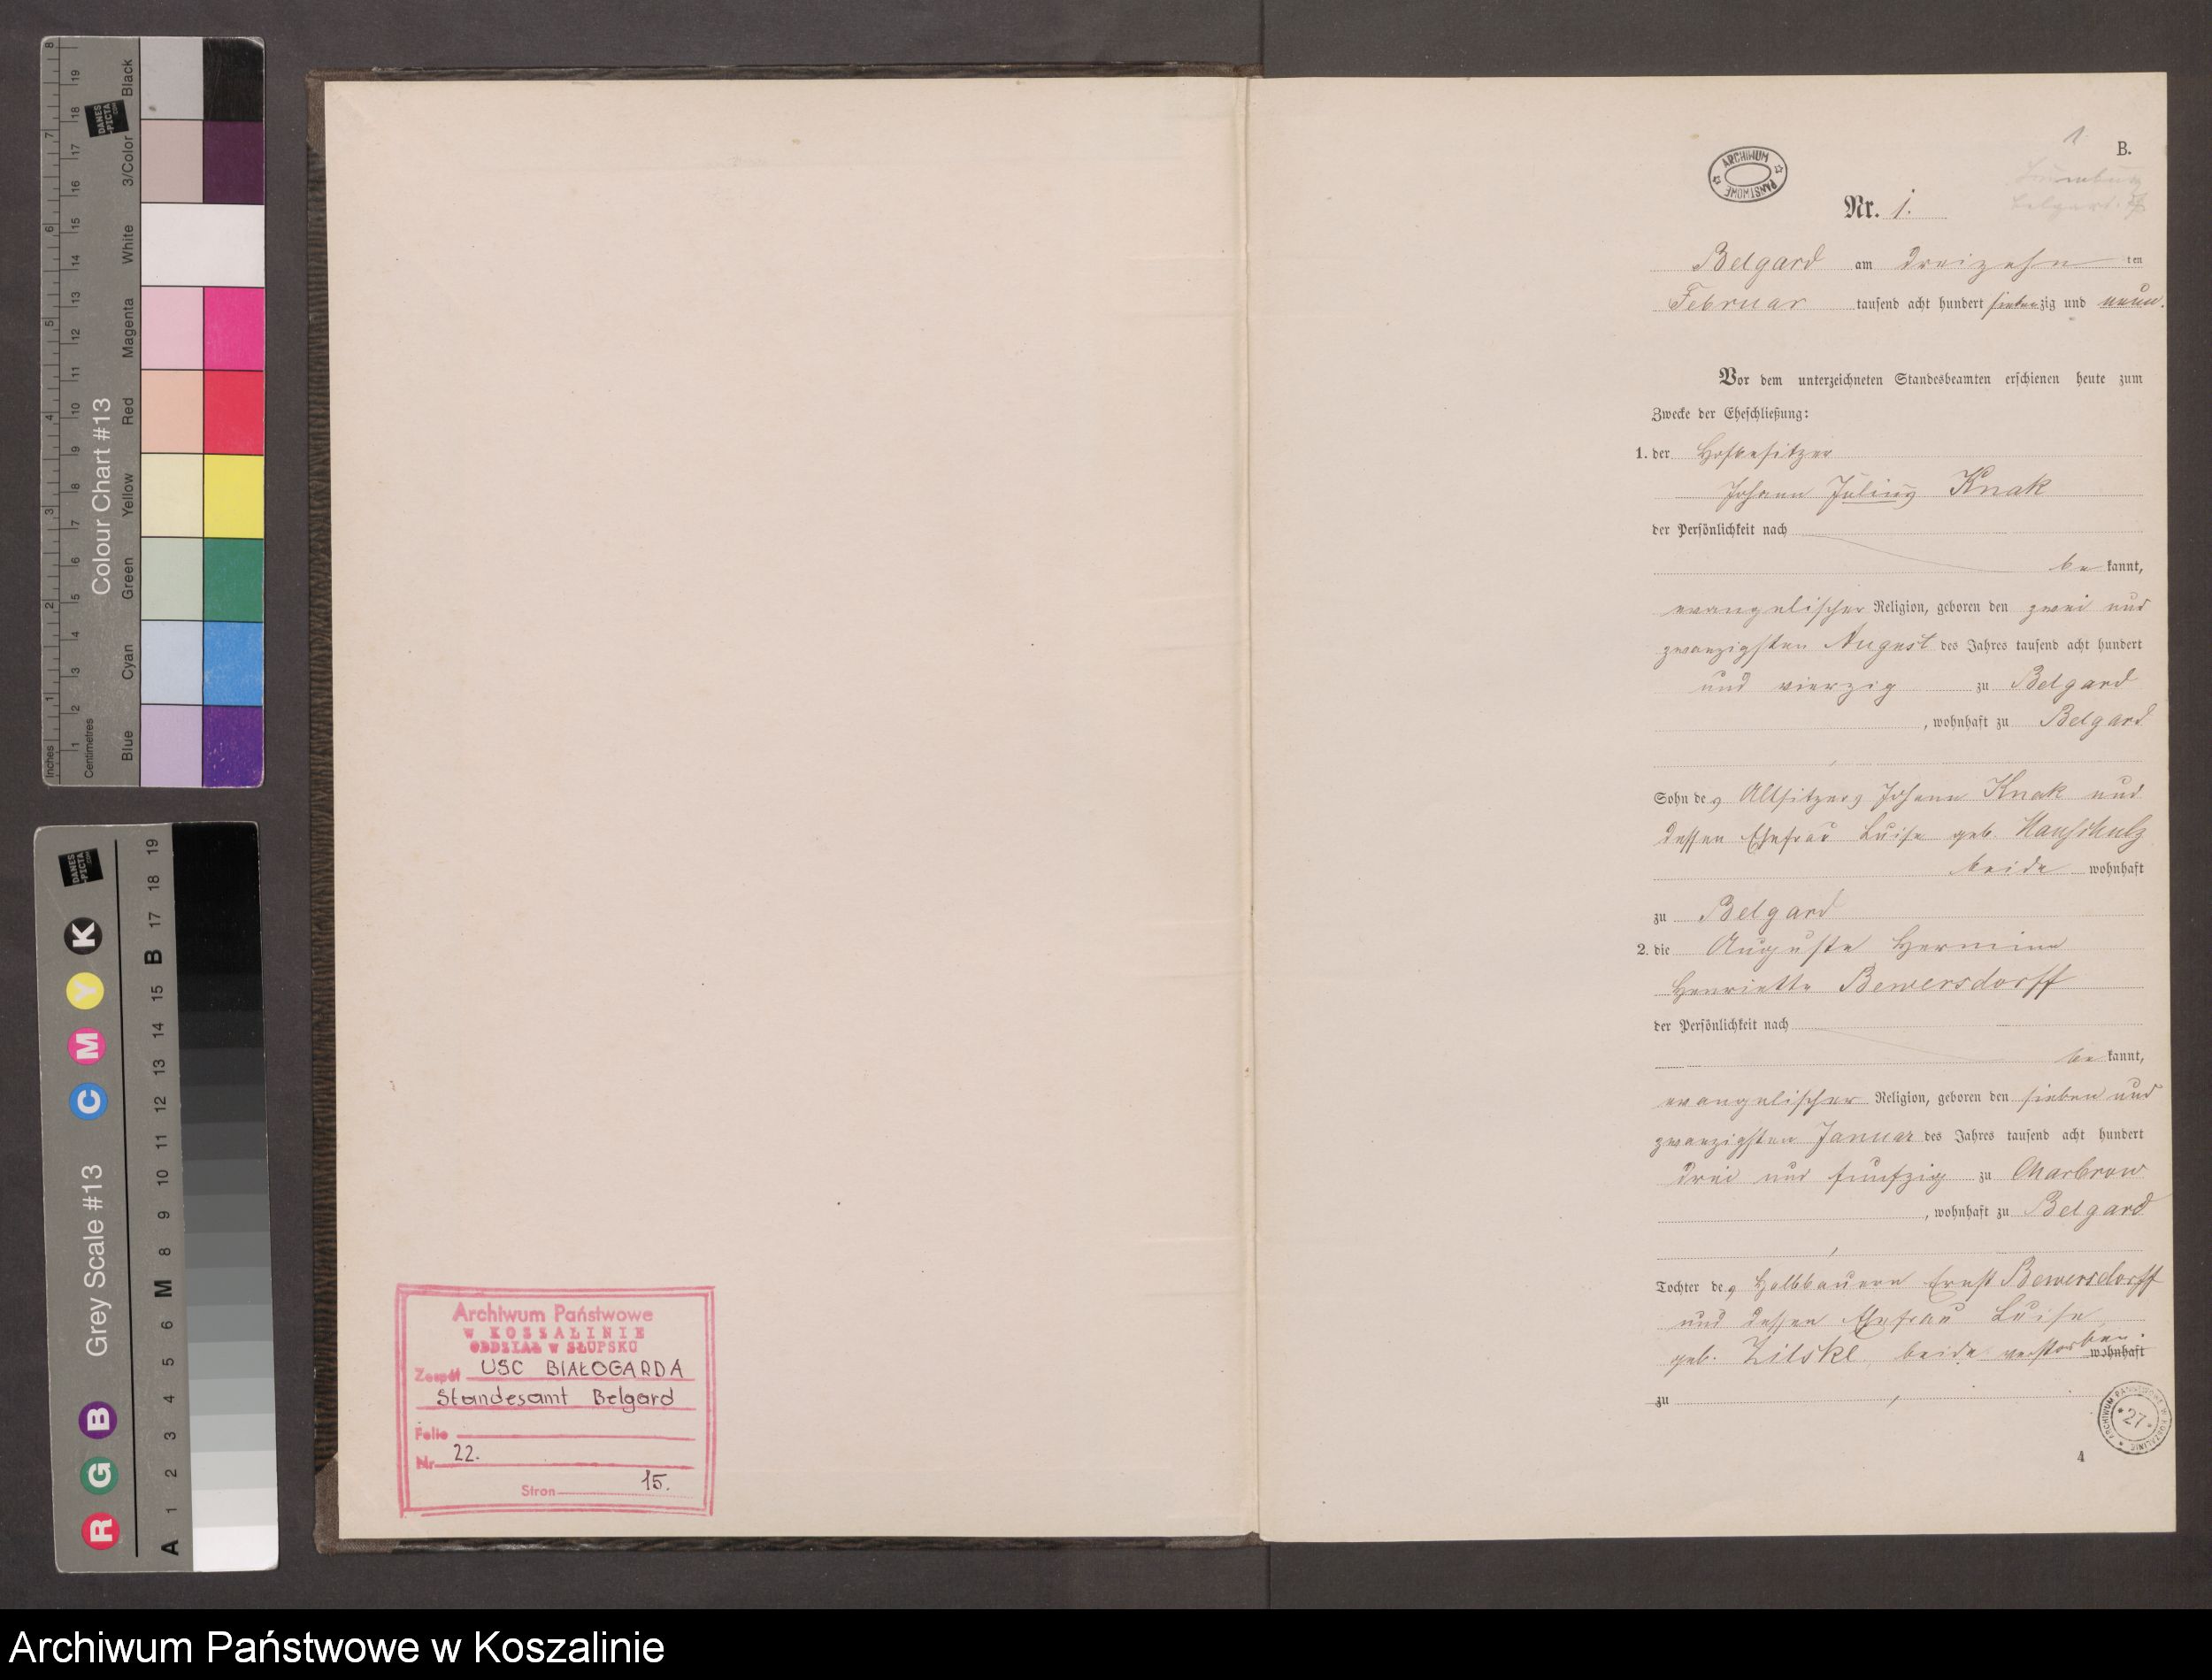 Inches
Centimetres
Colour Chart #13
Blue
Cyan
Green
Yellow
Red
Magenta
White
3/Color
Black
DANES
-PICTA
.COM
Grey Scale #13
R G B C M Y K
A 1 2 3 4 5 6 M 8 9 10 11 12 13 14 15 B 17 18 19
Archiwum Państwowe
w KOSZALINIE
ODDZIAŁ w SŁUPSKU
Zespół USC BIAŁOGARDA
Standesamt Belgard
Folio
Nr 22.
Stron 15.
1
B.
ARCHIWUM PAŃSTWOWE
Nr. 1.
Belgard am dreizehn ten
Februar tausend acht hundert siebenzig und neun.
Vor dem unterzeichneten Standesbeamten erschienen heute zum
Zwecke der Eheschließung:
1. der Hofbesitzer
Johann Julius Knak
der Persönlichkeit nach
be kannt,
evangelischer Religion, geboren den zwei und
zwanzigsten August des Jahres tausend acht hundert
und vierzig zu Belgard
, wohnhaft zu Belgard
Sohn des Altsitzers Johann Knak und
dessen Ehefrau Luise geb.
beide wohnhaft
zu Belgard
2. die Auguste Hermine
Henriette Bewersdorff
der Persönlichkeit nach
be kannt,
evangelischer Religion, geboren den sieben und
zwanzigsten Januar des Jahres tausend acht hundert
drei und funfzig zu Charbrow
, wohnhaft zu Belgard
Tochter des Halbbauern Ernst Bewersdorff
und dessen Ehefrau Luise,
geb. Zilske, beide verstorben. wohnhaft
zu
ARCHIWUM PAŃSTWOWE W KOSZALINIE
27
4
Archiwum Państwowe w Koszalinie